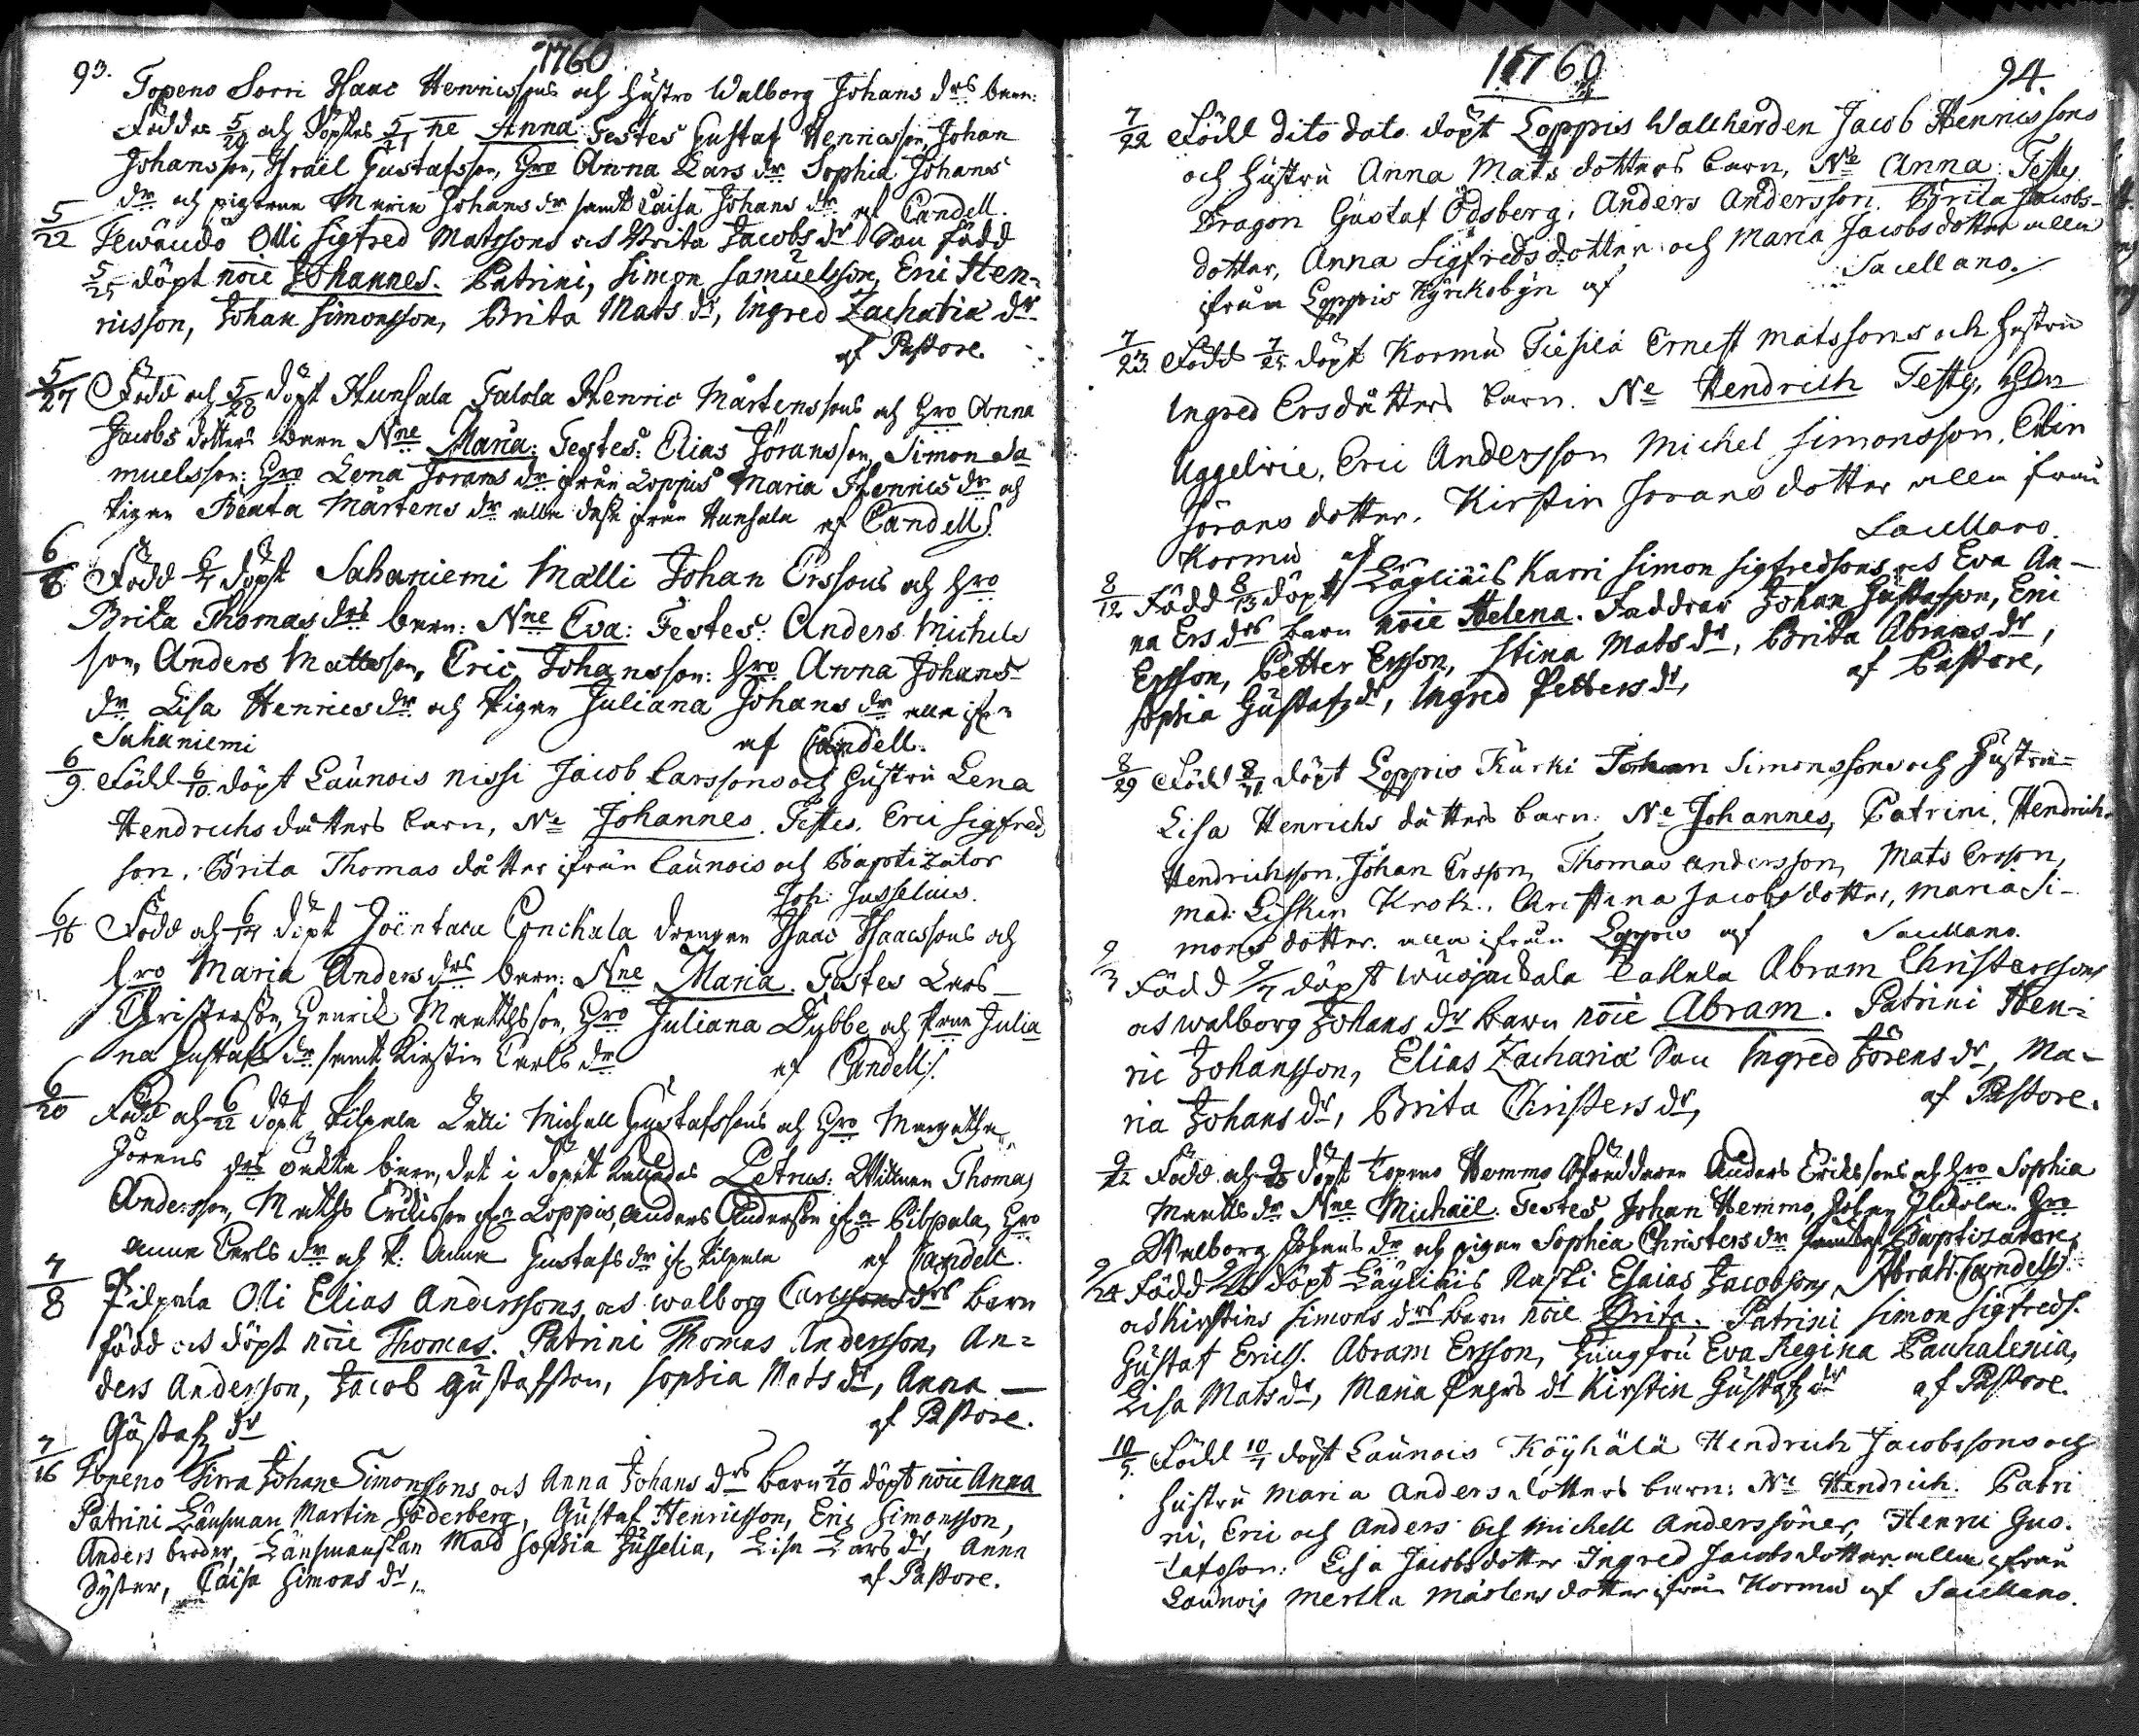 93.
1760
Topeno Sorri Isaac Henricssons och hustro Walborg Johans drs barn:
Föddes 5/20 och döptes 5/21 ne Anna Testes Gustaf Henricsson, Johan
Johansson, Israël Gustafsson, Hro Anna Lars dr Sophia Johans
dr och pigorna Maria Johans dr samt Caisa Johans dr af Candell.
5/22 Tewändö Olli Sigfred Matssons och Brita Jacobs dr Son född
5/25 döpt noie Johannes. Patrini, Simon Samuelsson, Eric Hen-
ricsson, Johan Simonsson, Brita Mats dr, Ingred Zachariæ dr
af Pastore.
5/27 Född och 5/28 döpt Hunsala Talola Henric Mårtenssons och Hro Anna
Jacobs dotters barn Nne Maria: Testes: Elias Jöransson, Simon Sa
muelsson: Hro Lena Jörans dr ifrån Loppis Maria Henrics dr och
Pigan Beata Mårtens dr alla desse ifrån Hunsala af Candell.
6/6 Född 6/7 döpt Sahaniemi Mälli Johan Erssons och Hro
Brita Thomas drs barn: Nne Eva: Testes: Anders Michels
son, Anders Mattsson, Eric Johansson: Hro Anna Johans
dr Lisa Henrics dr och Pigan Juliana Johans dr alla ifrn
Sahaniemi af Candell.
6/9. Född 6/10. döpt Launois Nissi Jacob Larssons och hustru Lena
Hendrichs dåtters barn, Ne Johannes. Testes. Eric Sigfred
son. Brita Thomas dåtter ifrån Launois och Baptizator
Joh: Jusselius.
6/16 Född och 6/17 döpt Joentaca Conckala drengen Isaac Isaacssons och
hro Maria Anders drs barn: Nne Maria. Testes Lars
Christersson, Henrik Matthsson, Hro Juliana Dybbe och Julia
na Gustafs dr samt Kirstin Carls dr af Candell.
6/20 Född och 6/22 döpt Pilpala Lälli Michell Gustafssons och Hro Margetha
Jörens drs oekta barn, det i dopet kallades Petrus: Wittnen Thomas
Andersson, Maths Ericksson ifrn Loppis, Anders Anderson ifrn Pilpala, Hro
Anna Carls dr och P: Anna Gustafs dr if Pilpala af Candell.
7/8 Pilpala Olli Elias Anderssons och Walborg Carlssons drs barn
född och döpt noie Thomas. Patrini Thomas Andersson, An-
ders Anderson, Jacob Gustafsson, Sophia Mats dr, Anna
Gustafs dr af Pastore.
7/16 Topeno Sirra Johan Simonssons och Anna Johans drs barn 7/20 döpt noie Anna
Patrini Länsman Martin Söderberg, Gustaf Henricsson, Eric Simonsson,
Anders broder, Länsmanskan Mad Sophia Jusselia, Lisa Lars dr, Anna
Syster, Caisa Simons dr, af Pastore.
1760
94.
7/22 Född dito dato döpt Loppis Wallherden Jacob Henricssons
och hustru Anna Mats dotters barn, Ne Anna: Testes
Dragon Gustaf Ödsberg, Anders Andersson. Brita Jacobs-
dotter, Anna Sigfreds dotter och Maria Jacobs dotter alla
ifrån Loppis Kyrckobyn af Sacellano.
7/23 Född 7/25 döpt Kormu Ernest Matssons och hustru
Ingred Ers dåtters barn. Ne Hendrich Testes,
Uggelvie, Eric Andersson Michel Simonsson, Elin
Jörans dotter. Kirstin Jörans dotter alla ifrån
Kormu af Sacellano.
8/12 Född 8/13 döpt Läyliäis Karri Simon Sigfredsons och Eva An-
na Ers drs barn noie Helena. Faddrar Johan Gustafsson, Eric
Ersson, Petter Ersson, Stina Mats dr, Brita Abrams dr,
Sophia Gustafs dr, Ingred Petters dr, af Pastore,
8/29 Född 8/31 döpt Loppis Kurki Johan Simonssons och Hustru
Lisa Henrichs dåtters barn: Ne Johannes, Patrini. Hendrich
Hendrichsson, Johan Ersson, Thomas Andersson, Mats Ersson,
Mad: Lisken Krok. Christina Jacobs dotter, Maria Si-
mons dotter. alla ifrån Loppis af Sacellano.
9/3 Född 9/7 döpt Wuojackala Callala Abram Christerssons
och Walborg Johans dr barn noie Abram. Patrini Hen-
ric Johansson, Elias Zachariæ Son Ingred Jörens dr, Ma-
ria Johans dr, Brita Christers dr, af Pastore.
9/22 Född och döpt Topeno Hemmo Anders Erickssons och Hro Sophia
Matts dr Nne Michaël. Testes Johan Hemmo, Johan Hro
Walborg Johans dr och pigan Sophia Christers dr samt Baptizatore
Abrah: Candell.
9/24 Född 9/28 döpt Läyliäis Raski Esaias Jacobsons
och Kirstins Simons drs barn noie Brita. Patrini Simon Sigfreds.
Gustaf Erics. Abram Ersson, Jungfru Eva Regina Pauhalenia,
Lisa Mats dr, Maria dr Kirstin Gustafs dr af Pastore.
10/5. Född 10/7 döpt Launois Köyhälä Hendrich Jacobssons och
hustru Maria Anders dotters barn: Ne Hendrich. Patri
ni, Eric och Anders och Michell Anderssöner, Henric Gus.
tafsson: Lisa Jacobs dotter Ingred Jacobs dotter alla ifrån
Launois Mertha Mårtens dotter ifrån Kormu af Sacellano.